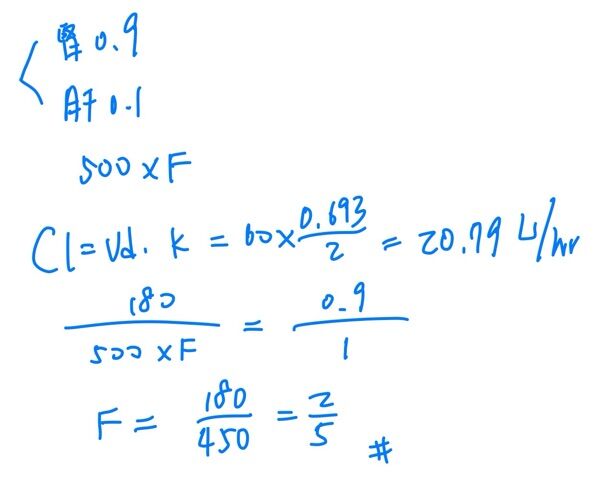 腎 0.9
肝 0.1
500 × F
Cl = Vd. k = 60 × 0.693/2 = 20.79 L/hr
180/(500 × F) = 0.9/1
F = 180/450 = 2/5 #